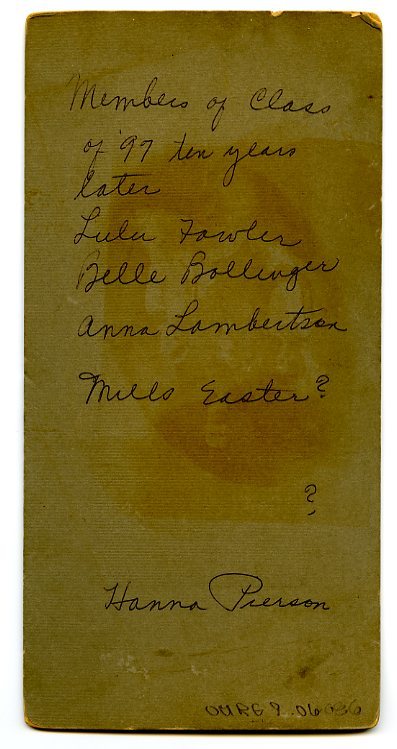 Members of Class
of '97 ten years
later
Lulu Fowler
Belle Bollinger
Anna Lambertson
Mills Easter?
?
Hanna Pierson